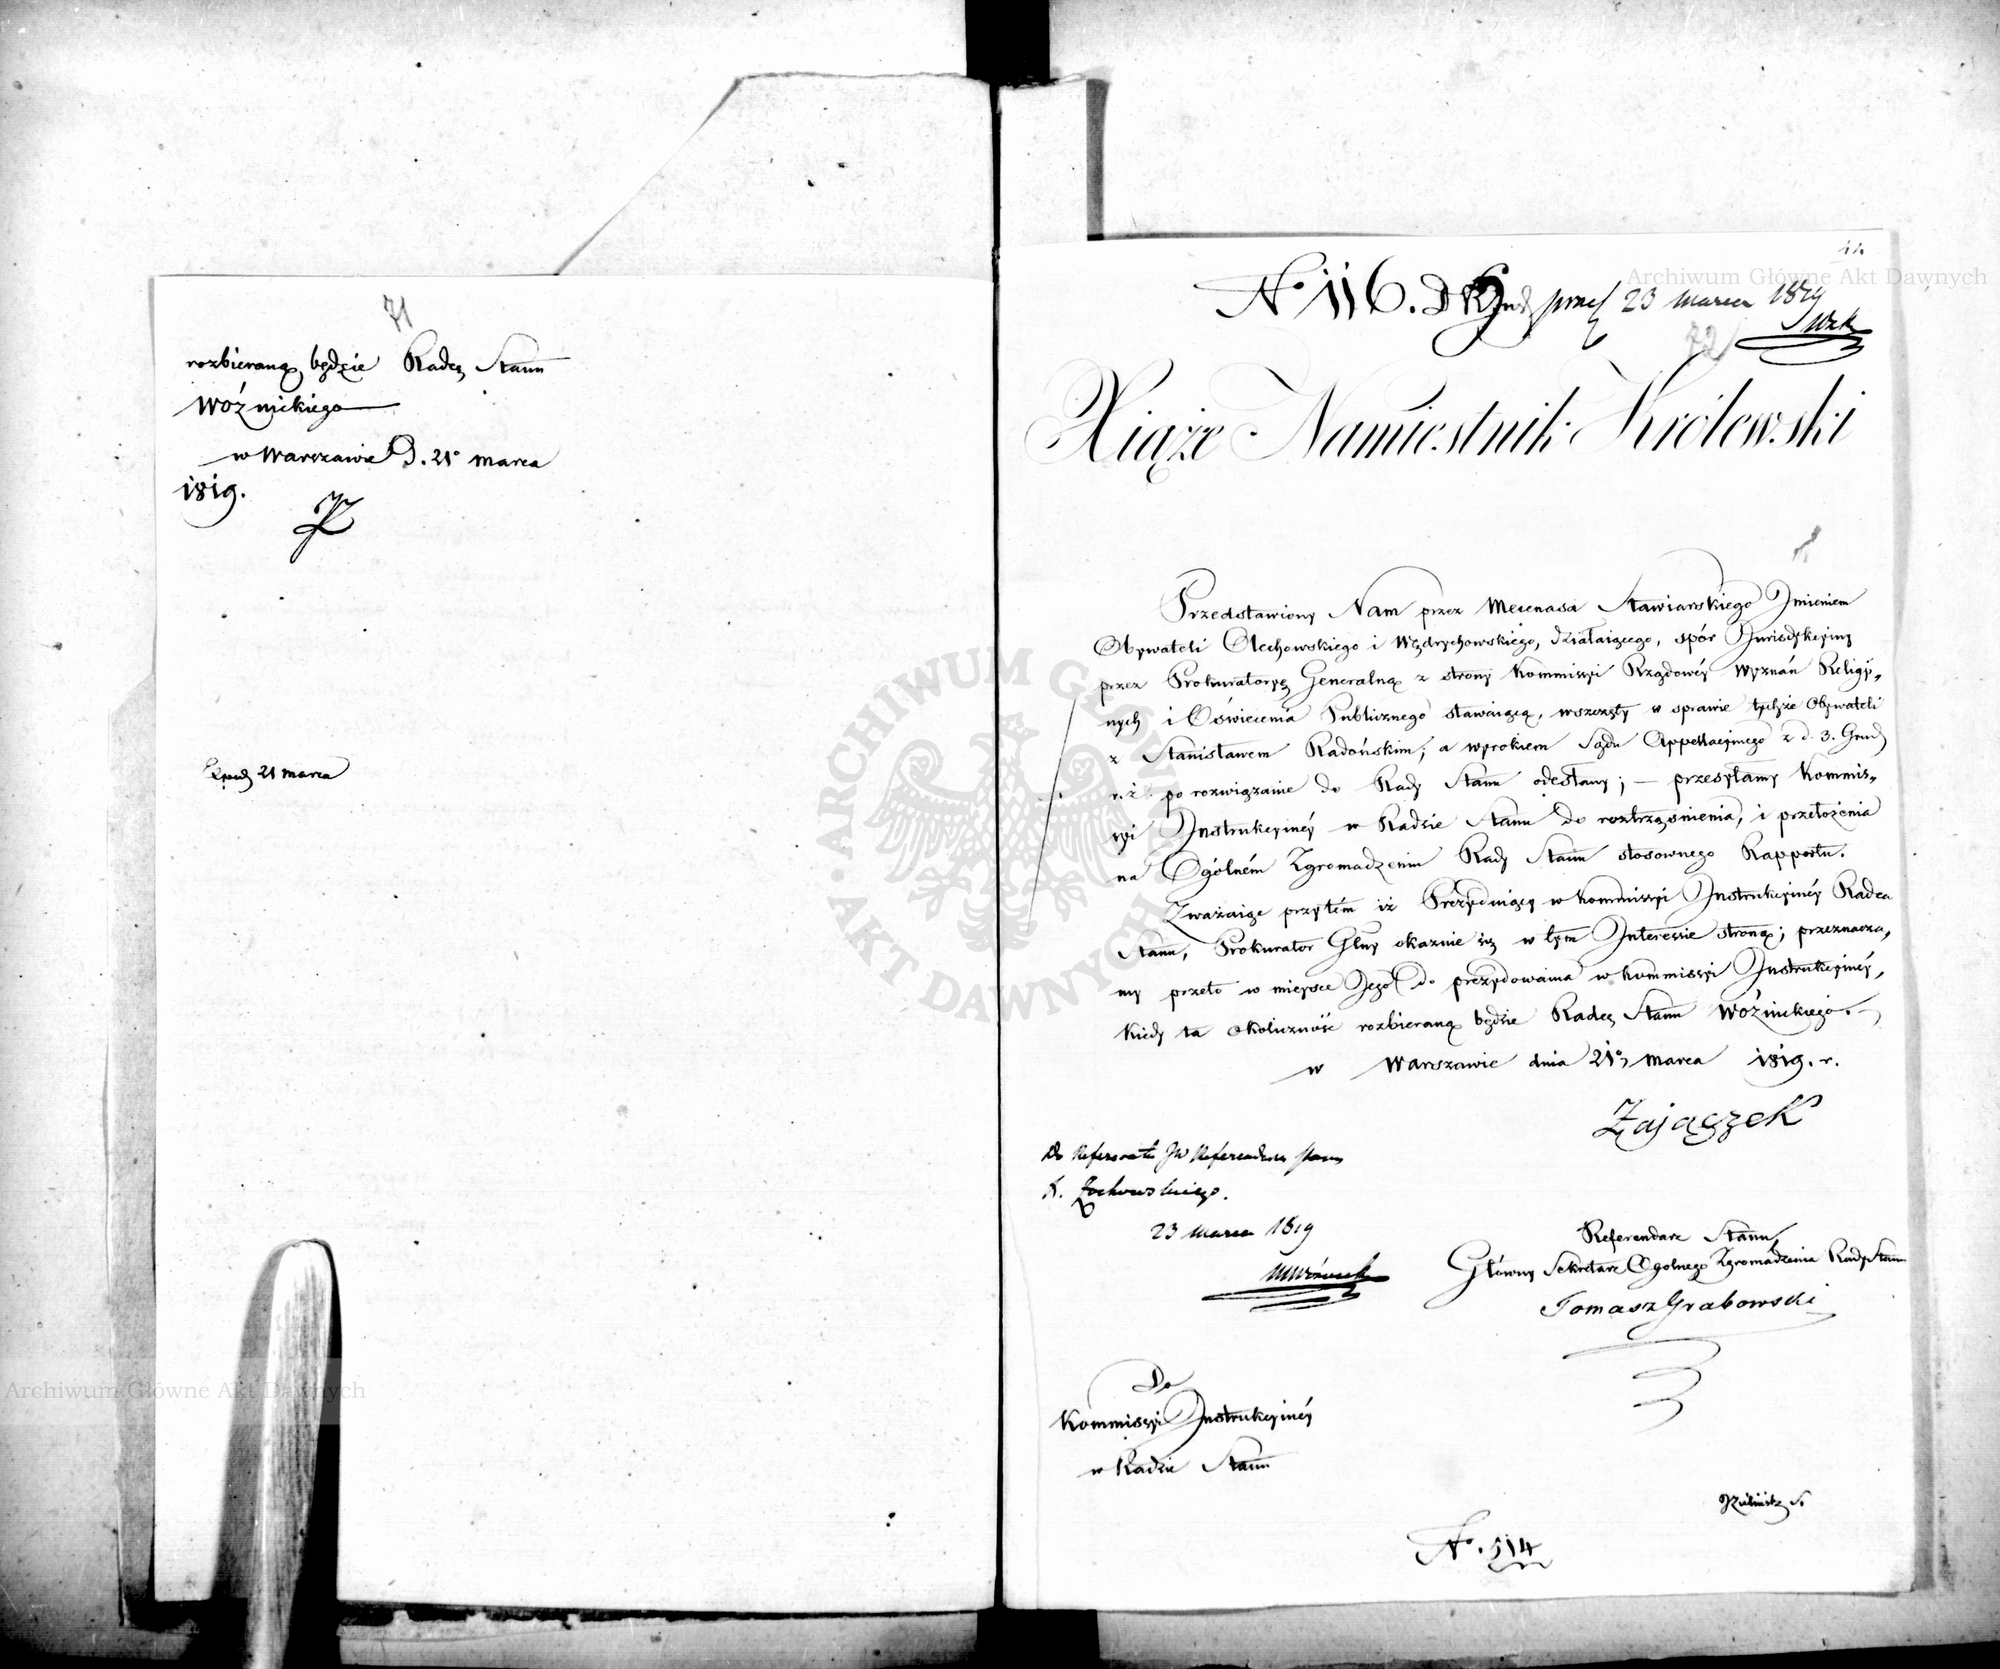 71
rozbieraną będzie Radcę Stanu
Woźnickiego
w Warszawie D. 21o Marca
1819.
21 Marca
No 116. 23 Marca 1819
72
Xiąże Namiestnik Królewski
Przedstawiony Nam przez Mecenasa Stawiarskiego Imieniem
Obywateli Olechowskiego i Wędrychowskiego, działaiącego, spór Jurisdykcyiny
przez Prokuratoryę Generalną z strony Kommissyi Rządowéy Wyznań Religiy„
nych i Oświecenia Publicznego stawaiącą, wszczęty w sprawie tychże Obywateli
z Stanisławem Radońskim; a wyrokiem Sądu Appellacyinego z d. 3. Grud
r. z. po rozwiązanie do Rady Stanu odesłany; — przesyłamy Kommis„
syi Instrukcyinéy w Radzie Stanu do roztrząśnienia, i przełożenia
na Ogólném Zgromadzeniu Rady Stanu stosownego Rapportu.
Zważaiąc przytém iż Prezyduiący w Kommissyi Instrukcyinéy Radca
Stanu, Prokurator Glny okazuie się w tym Interessie stroną; przeznacza„
my przeto w mieysce Jego do prezydowania w Kommissyi Instrukcyinéy,
kiedy ta okoliczność rozbieraną będzie Radcę Stanu Woźnickiego. —
w Warszawie dnia 21o Marca 1819. r.
Zajączek
Do Referatu JW Referendarza Stanu
K. Żochowskiego.
23 Marca 1819
MWoźnicki
Referendarz Stanu,
Główny Sekretarz Ogólnego Zgromadzenia Rady Stanu
Tomasz Grabowski
Do
Kommissyi Instrukcyinéy
w Radzie Stanu
No. 514
Archiwum Główne Akt Dawnych
Archiwum Główne Akt Dawnych